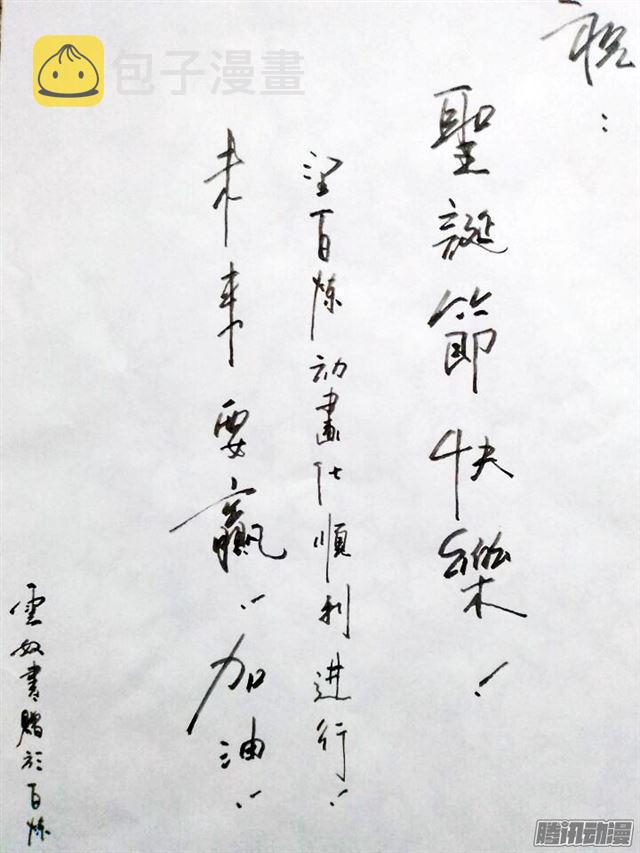 祝：
聖誕節快樂！
望百炼动畫化順利进行！
未来要贏！加油！
雲奴書贈於百炼
包子漫畫
腾讯动漫